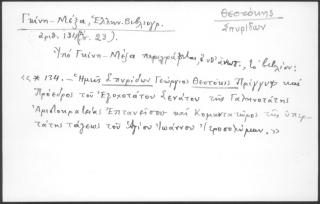 Γκίνη-Μέξα, Ἑλλην. Βιβλιογρ.
ἀριθ. 134 (σ. 23).
Θεοτόκης
Σπυρίδων
Ὑπὸ Γκίνη-Μέξα περιγράφεται, ἀνωτ., τὸ βιβλίον:
«* 134.— Ἡμεῖς Σπυρίδων Γεώργιος Θεοτόκης Πρίγγυψ καὶ
Πρόεδρος τοῦ Ἐξοχοτάτου Σενάτου τῆς Γαληνοτάτης
Ἀριστοκρατείας Ἑπτανήσου καὶ Κομεντατῶρος τῆς ὑπερ-
τάτης τάξεως τοῦ Ἁγίου Ἰωάννου Ἱεροσολύμων.»